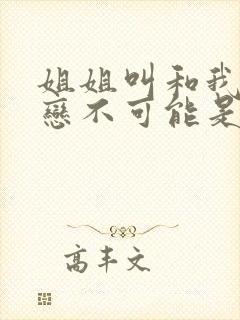 姐姐叫和我
戀不可能是
高丰文